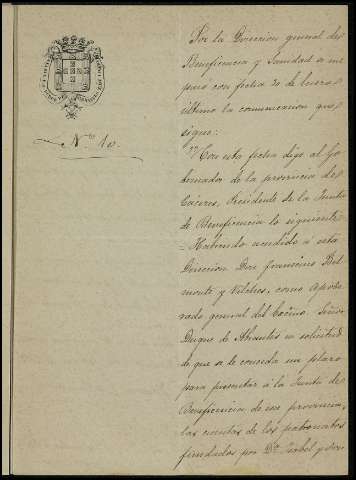 Nº 10.
Por la Direccion general de
Beneficencia y Sanidad se me
paso con fecha 30 de Enero
último la comunicacion que
sigue:
"Con esta fecha digo al Go-
bernador de la provincia de
Cáceres, Presidente de la Junta
de Beneficencia lo siguiente
= Habiendo acudido á esta
Direccion Don Francisco Bel
monte y Vilches, como Apode
rado general del Excmo. Señor
Duque de Abrantes en solicitud
de que se le conceda un plazo
para presentar á la Junta de
Beneficencia de esa provincia,
las cuentas de los patronatos
fundados por Dª Isabel y